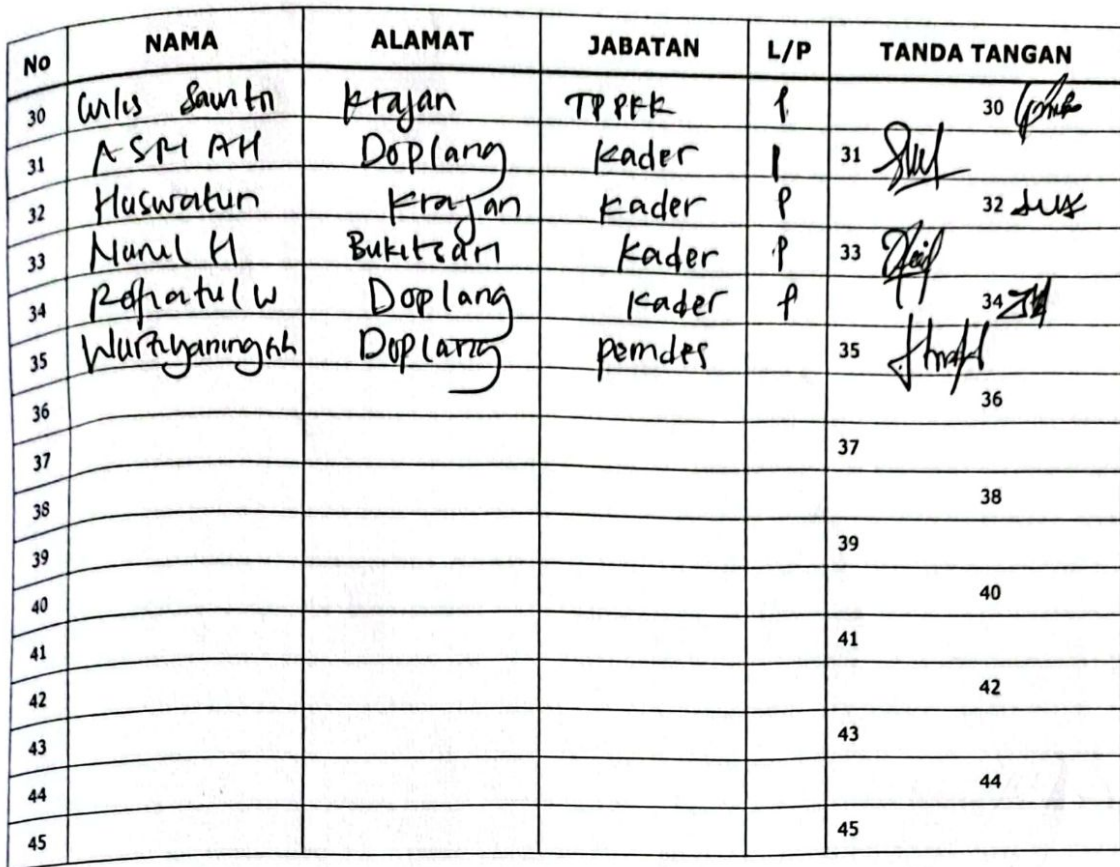 No NAMA ALAMAT JABATAN L/P TANDA TANGAN
30 Krajan TPPKK P 30
31 ASMAH Doplang Kader P 31
32 Huswatun Krajan Kader P 32
33 Nurul H Bukitsari Kader P 33
34 Rofiatul W Doplang Kader P 34
35 Doplang pemdes 35
36 36
37 37
38 38
39 39
40 40
41 41
42 42
43 43
44 44
45 45